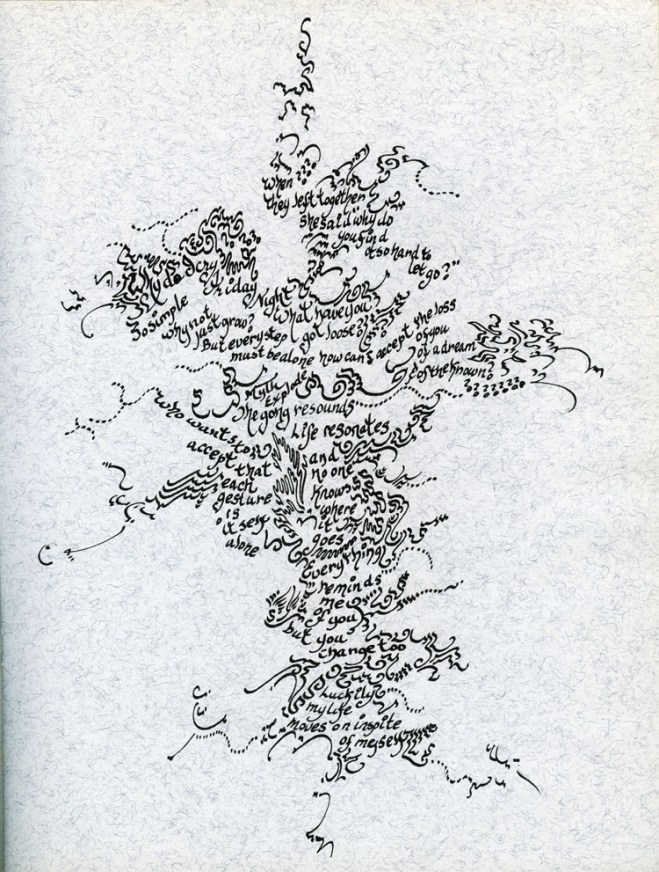 When
they left together
she said "why do
you find
it so hard to
let go?"
Why do I cry
Friday
Night
So simple
why not
just grow?
What have you
got loose?
But every step I
must be alone how can I accept the loss
of you
of a dream
of the known?
Myth
Explode
The gong resounds
Life resonates
Who wants to
accept that
each
gesture
is
itself
alone
and
no one
Knows
where
it
goes
Everything
reminds
me
of you
but you
change too
Luckily
my life
moves on inspite
of myself